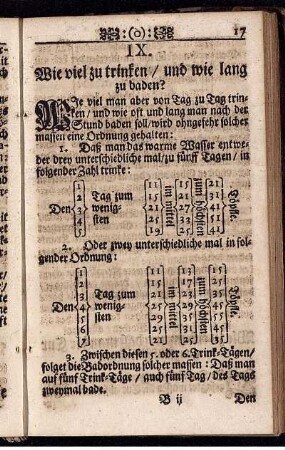 (o) 17
IX.
Wie viel zu trinken / und wie lang
zu baden?
Wie viel man aber von Tag zu Tag trin-
ken / und wie oft und lang man nach der
Stund baden soll / wird ohngefehr solcher
massen eine Ordnung gehalten:
1. Daß man das warme Wasser entwe-
der drey unterschiedliche mal / zu fünff Tagen / in
folgender Zahl trinke:
Den 1 2 3 4 5 Tag zum wenig-sten 11 15 21 im Mittel 15 21 25 zum höchsten 35 Töpfle.
2. Oder zwey unterschiedliche mal in fol-
gender Ordnung:
Den 1 2 3 4 5 6 7 Tag zum wenig-sten 11 15 21 25 im Mittel 13 17 zum höchsten 15 25 35 41 45 Töpfle.
3. Zwischen diesen 5. oder 6. Trink-Tägen /
folget die Badordnung solcher massen: Daß man
auf fünf Trink-Täge / auch fünf Tag / des Tags
zweymal bade.
B ij Den